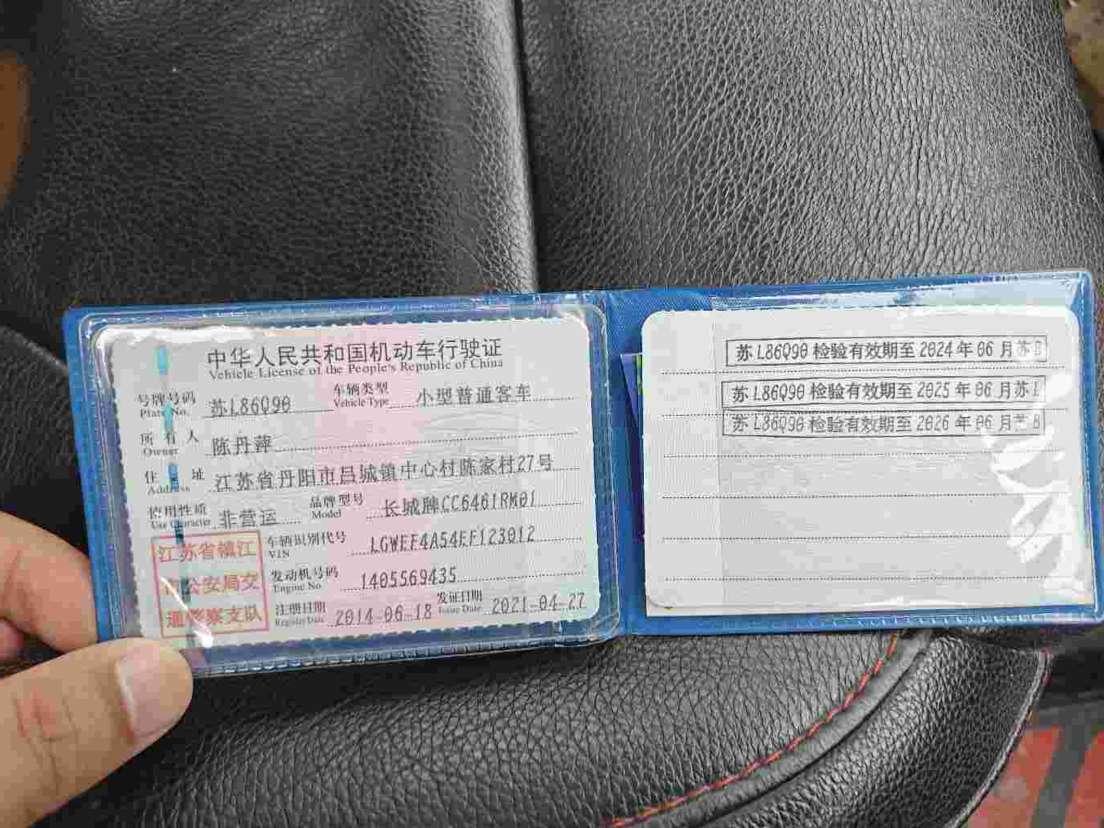 中华人民共和国机动车行驶证
Vehicle License of the People's Republic of China
号牌号码 苏L86Q90 车辆类型 小型普通客车
Plate No. Vehicle Type
所有人 陈丹萍
Owner
住址 江苏省丹阳市吕城镇中心村陈家村27号
Address
使用性质 非营运 品牌型号 长城牌CC6461RM01
Use Character Model
车辆识别代号 LGWEF4A54EF123012
VIN
发动机号码 1405569435
Engine No.
注册日期 2014-06-18 发证日期 2021-04-27
Register Date Issue Date
江苏省镇江
市公安局交
通警察支队
苏L86Q90 检验有效期至 2024年06月苏B
苏L86Q90 检验有效期至 2025年06月苏L
苏L86Q90 检验有效期至 2026年06月苏B